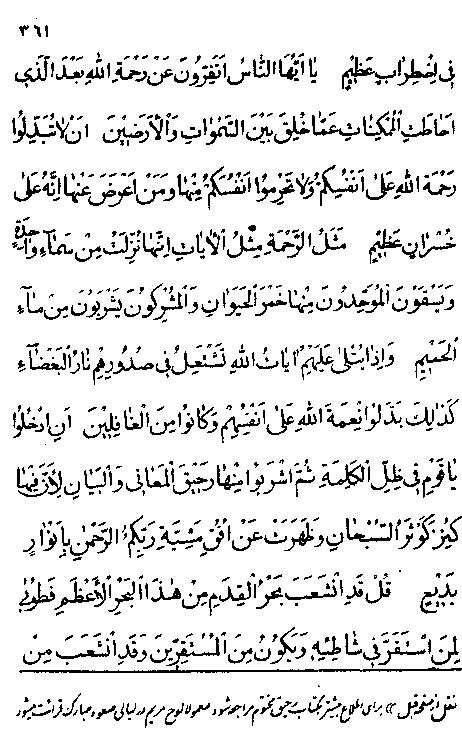 ٣٦١
فی اضطراب عظیم یا ایّها النّاس اتفرّون عن رحمة الله بعد الّذی
احاطت الممکنات عمّا خلق بین السّموات والأرضین ان لا تبدّلوا
رحمة الله علی انفسکم ولا تحرموا انفسکم منها ومن اعرض عنها انّه علی
خسران عظیم مثل الرّحمة مثل الآیات انّها نزلت من سمآء واحدة
ویسقون الموحّدون منها خمر الحیوان والمشرکون یشربون من مآء
الحمیم واذا یتلی علیهم ایات الله تشتعل فی صدورهم نار البغضآء
کذالک بدّلوا نعمة الله علی انفسهم وکانوا من الغافلین ان ادخلوا
یا قوم فی ظلّ الکلمة ثمّ اشربوا منها رحیق المعانی والبیان لأنّ فیها
کنز کوثر السّبحان وظهرت عن افق مشیّة ربّکم الرّحمن بانوار
بدیع قل قد انشعب بحر القدم من هذا البحر الأعظم فطوبی
لمن استقرّ فی شاطئه ویکون من المستقرّین وقد انشعب من
نقل از صفحه قبل :: برای اطلاع بیشتر بکتاب رحیق مختوم مراجعه شود معمولا لوح مریم در لیالی صعود مبارک قرائت میشود